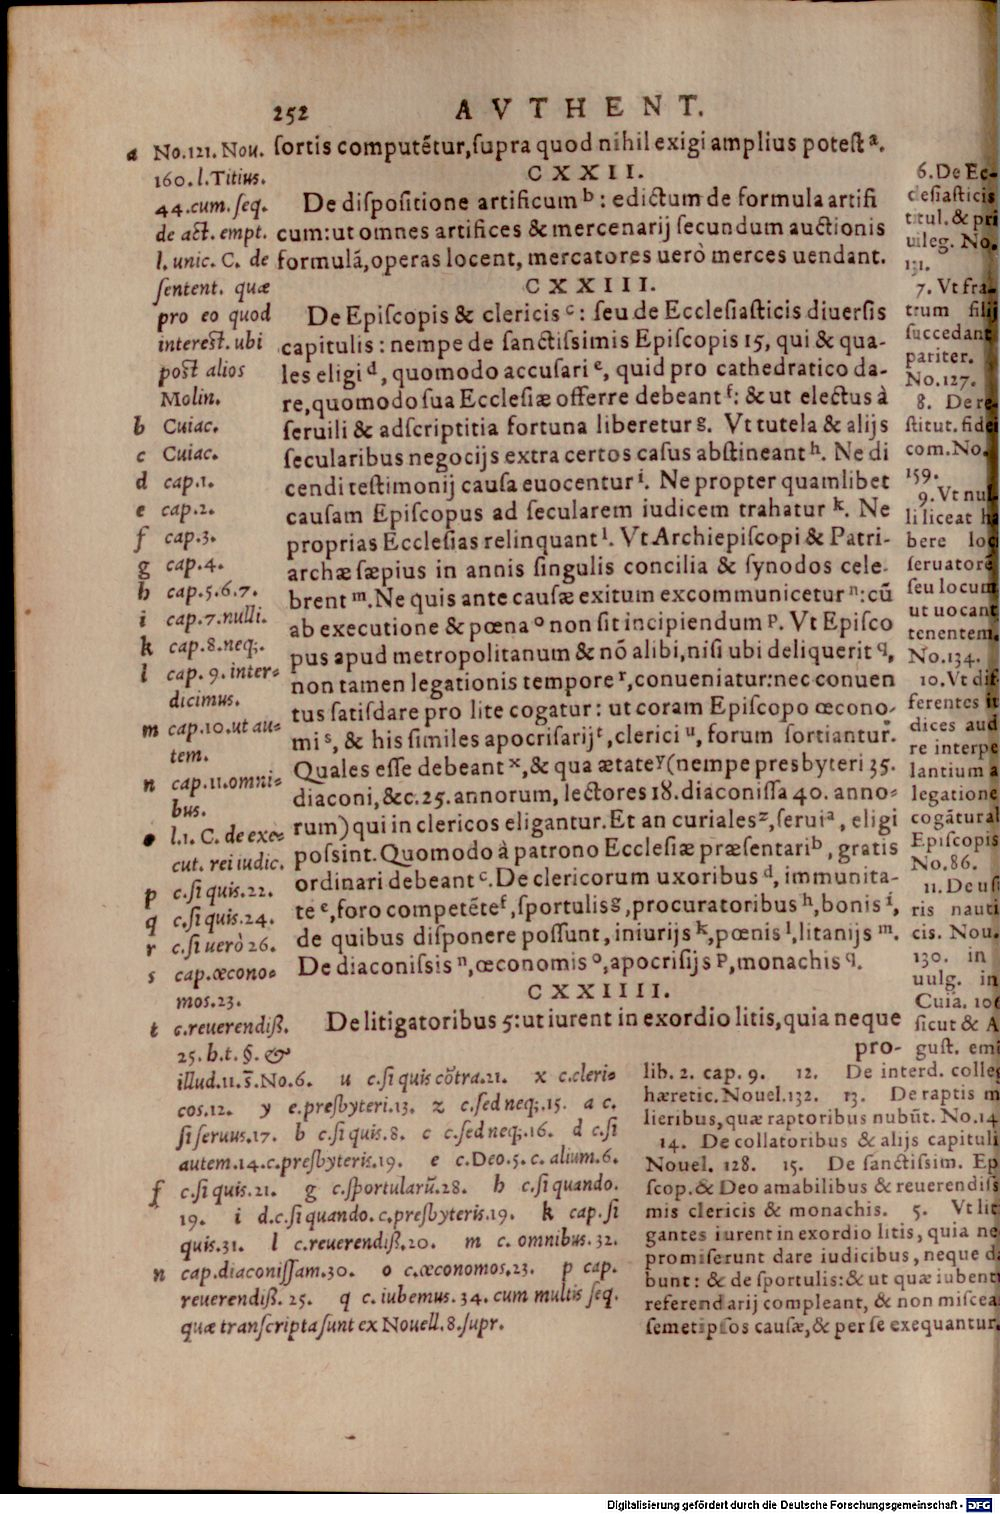 252 AVTHENT.
sortis computẽtur, supra quod nihil exigi amplius potest a.
CXXII.
De dispositione artificum b : edictum de formula artifi
cum: ut omnes artifices & mercenarij secundum auctionis
formulã, operas locent, mercatores uerò merces uendant.
CXXIII.
De Episcopis & clericis c : seu de Ecclesiasticis diuersis
capitulis : nempe de sanctissimis Episcopis 15, qui & qua-
les eligi d, quomodo accusari e, quid pro cathedratico da-
re, quomodo sua Ecclesiæ offerre debeant f: & ut electus à
seruili & adscriptitia fortuna liberetur g. Vt tutela & alijs
secularibus negocijs extra certos casus abstineant h. Ne di
cendi testimonij causa euocentur i. Ne propter quamlibet
causam Episcopus ad secularem iudicem trahatur k. Ne
proprias Ecclesias relinquant l. Vt Archiepiscopi & Patri-
archæ sæpius in annis singulis concilia & synodos cele-
brent m. Ne quis ante causæ exitum excommunicetur n: cũ
ab executione & pœna o non sit incipiendum p. Vt Episco
pus apud metropolitanum & nõ alibi, nisi ubi deliquerit q,
non tamen legationis tempore r, conueniatur: nec conuen
tus satisdare pro lite cogatur : ut coram Episcopo œcono-
mi s, & his similes apocrisarij t, clerici u, forum sortiantur.
Quales esse debeant x, & qua ætate y (nempe presbyteri 35.
diaconi, &c. 25. annorum, lectores 18. diaconissa 40. anno-
rum) qui in clericos eligantur. Et an curiales z, serui a, eligi
possint. Quomodo à patrono Ecclesiæ præsentari b, gratis
ordinari debeant c. De clericorum uxoribus d, immunita-
te e, foro competẽte f, sportulis g, procuratoribus h, bonis i,
de quibus disponere possunt, iniurijs k, pœnis l, litanijs m.
De diaconissis n, œconomis o, apocrisijs p, monachis q.
CXXIIII.
De litigatoribus 5: ut iurent in exordio litis, quia neque
pro-
a No. 121. Nou.
160. l. Titius.
44. cum. seq.
de act. empt.
l. unic. C. de
sentent. quæ
pro eo quod
interest. ubi
post alios
Molin.
b Cuiac.
c Cuiac.
d cap. 1.
e cap. 2.
f cap. 3.
g cap. 4.
h cap. 5. 6. 7.
i cap. 7. nulli.
k cap. 8. neq;.
l cap. 9. inter-
dicimus.
m cap. 10. ut au-
tem.
n cap. 11. omni-
bus.
o l. 1. C. de exe-
cut. rei iudic.
p c. si quis. 22.
q c. si quis. 24.
r c. si uerò 26.
s cap. œcono-
mos. 23.
t c. reuerendiß.
25. h. t. §. &
illud. 11. s̃. No. 6. u c. si quis cõtra. 21. x c. cleri-
cos. 12. y e. presbyteri. 13. z c. sed neq;. 15. a c.
si seruus. 17. b c. si quis. 8. c c. sed neq;. 16. d c. si
autem. 14. c. presbyteris. 19. e c. Deo. 5. c. alium. 6.
f c. si quis. 21. g c. sportularũ. 28. h c. si quando.
19. i d. c. si quando. c. presbyteris. 19. k cap. si
quis. 31. l c. reuerendiß. 20. m c. omnibus. 32.
n cap. diaconissam. 30. o c. œconomos. 23. p cap.
reuerendiß. 25. q c. iubemus. 34. cum multis seq.
quæ transcripta sunt ex Nouell. 8. supr.
6. De Ec-
clesiasticis
titul. & pri
uileg. No.
131.
7. Vt fra-
trum filij
succedant
pariter.
No. 127.
8. De re-
stitut. fidei
com. No.
159.
9. Vt nul-
li liceat ha
bere loci
seruatore
seu locum
ut uocant
tenentem.
No. 134.
10. Vt dif
ferentes iu
dices aud
re interpe
lantium a
legatione
cogãtural
Episcopis
No. 86.
11. De usi
ris nauti
cis. Nou.
130. in
uulg. in
Cuia. 106
sicut & A
gust. emi
lib. 2. cap. 9. 12. De interd. colleg
hæretic. Nouel. 132. 13. De raptis m
lieribus, quæ raptoribus nubũt. No. 14
14. De collatoribus & alijs capituli
Nouel. 128. 15. De sanctissim. Ep
scop. & Deo amabilibus & reuerendiss
mis clericis & monachis. 5. Vt liti
gantes iurent in exordio litis, quia ne
promiserunt dare iudicibus, neque d
bunt : & de sportulis: & ut quæ iubent
referendarij compleant, & non miscea
semetipsos causæ, & per se exequantur.
Digitalisierung gefördert durch die Deutsche Forschungsgemeinschaft - DFG